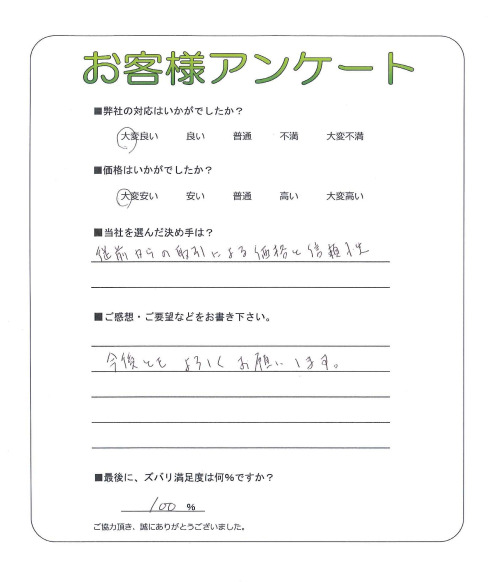 お客様アンケート
■弊社の対応はいかがでしたか？
大変良い 良い 普通 不満 大変不満
■価格はいかがでしたか？
大変安い 安い 普通 高い 大変高い
■当社を選んだ決め手は？
従前からの取引による価格と信頼性
■ご感想・ご要望などをお書き下さい。
今後ともよろしくお願いします。
■最後に、ズバリ満足度は何%ですか？
100 %
ご協力頂き、誠にありがとうございました。